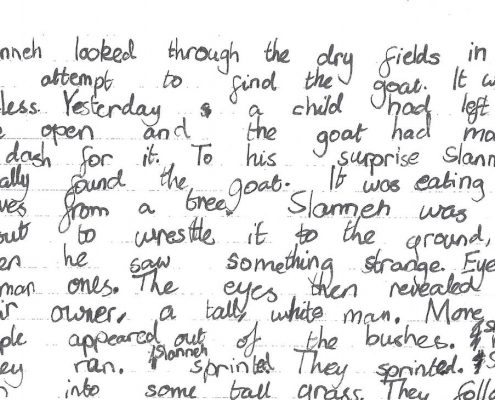 nneh looked through the dry fields in
attempt to find the goat. It w
less. Yesterday a child had left
e open and the goat had ma
dash for it. To his surprise Slann
ally found the goat. It was eating
ves from a tree. Slanneh was
out to wrestle it to the ground,
en he saw something strange. Eye
man ones. The eyes then revealed
ir owner, a tall, white man. More
ple appeared out of the bushes.
ey ran. Slanneh sprinted. They sprinted.
into some tall grass. They follo